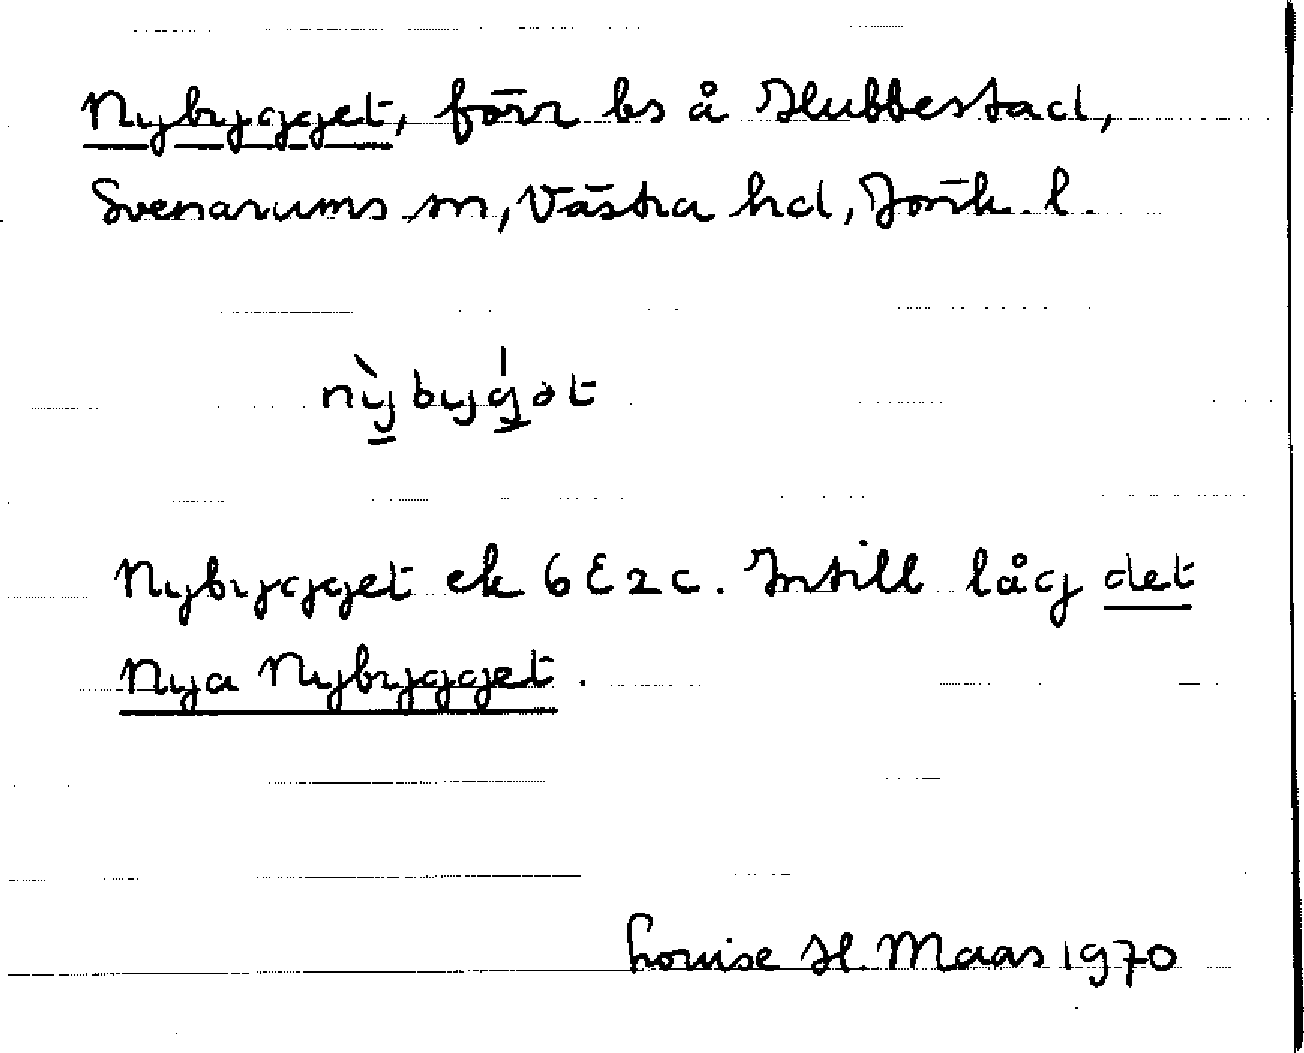 Nybygget, förr bs å Hubbestad,
Svenarums sn, Västra hd, Jönk. l.
nỳbyg̍ət
Nybygget ek 6E2c. Intill låg det
Nya Nybygget.
Louise H. Maas 1970